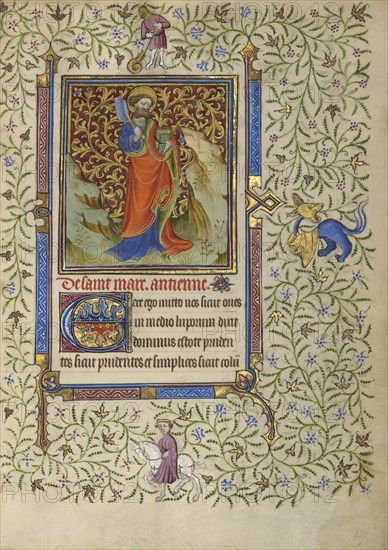 De saint marc. antienne.
Ecce ego mitto vos sicut oves
in medio luporum dicit
dominus estote pruden
tes sicut prudentes et simplices sicut colu